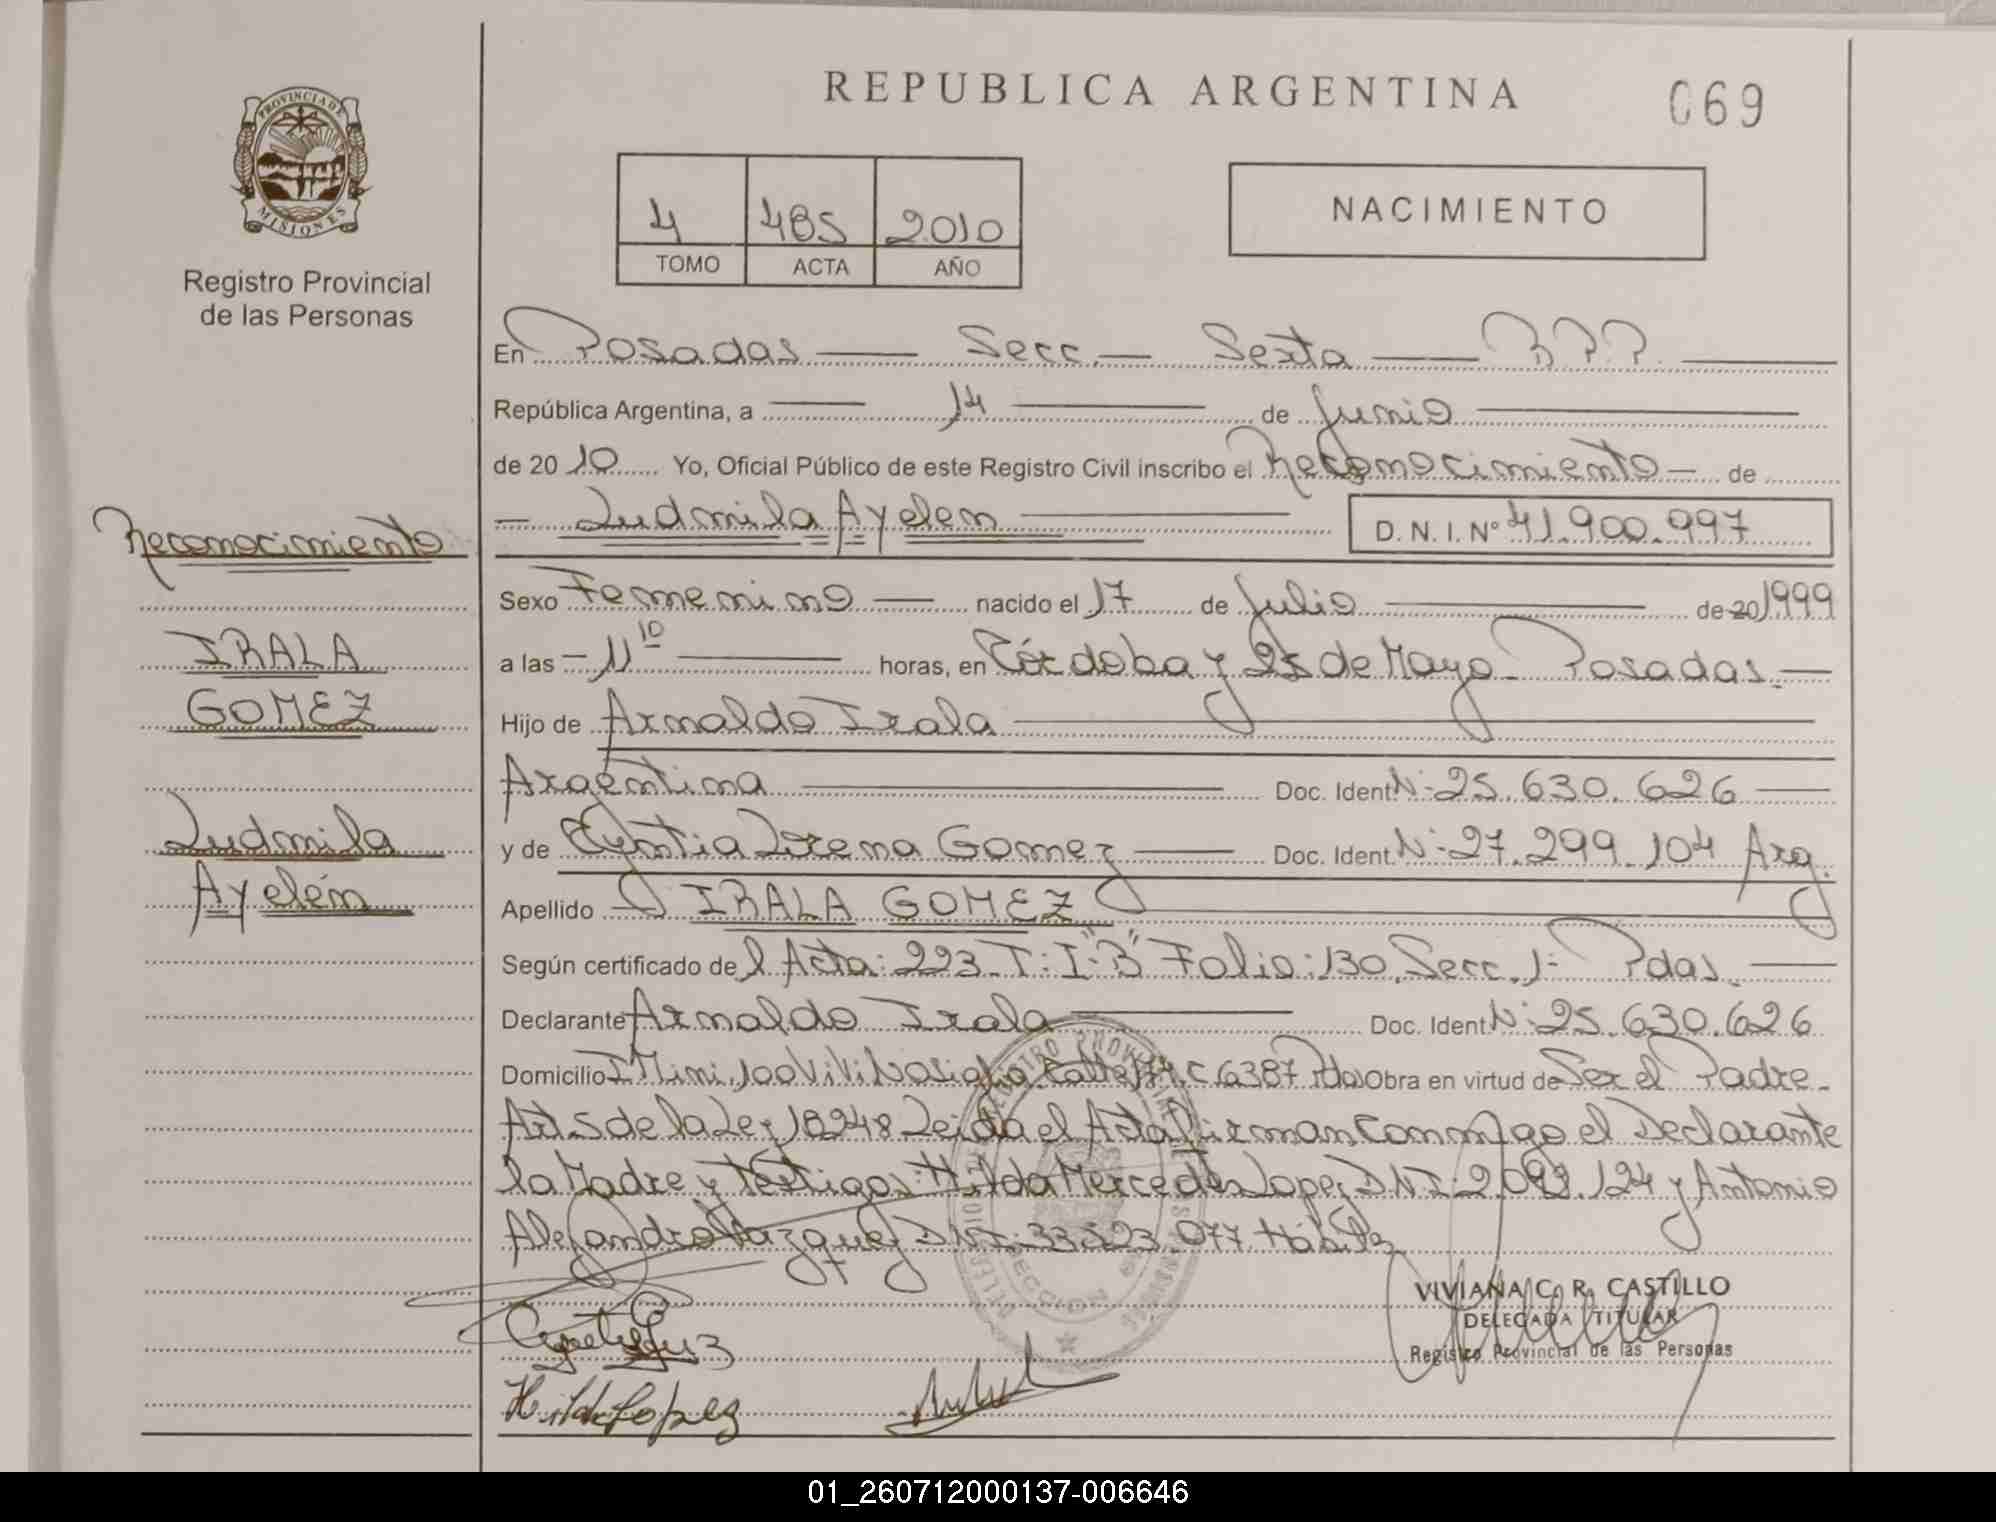 REPUBLICA ARGENTINA
069
PROVINCIA DE
MISIONES
Registro Provincial
de las Personas
4 485 2010
TOMO ACTA AÑO
NACIMIENTO
En Posadas — Secc. — Sexta —
República Argentina, a — 14 — de Junio —
de 2010 Yo, Oficial Público de este Registro Civil inscribo el Reconocimiento — de
— Ludmila Ayelen — D. N. I. Nº 41.900.997
Sexo Femenino — nacido el 17 de Julio — de 20 1999
a las — 11 10 — horas, en Córdoba y 25 de Mayo - Posadas. —
Hijo de Arnaldo Irala —
Argentina — Doc. Ident. Nº 25.630.626 —
y de Cyntia Lorena Gomez — Doc. Ident. Nº 27.299.104 Arg.
Apellido IRALA GOMEZ —
Según certificado del Acta: 223 T: I-"B" Folio: 130. Secc. 1º Pdas. —
Declarante Arnaldo Irala — Doc. Ident. Nº 25.630.626
Domicilio 100 Viv. Calle C. 6387 Pdas Obra en virtud de Ser el Padre -
Art. 5 de la Ley 18248 Leida el Acta Firman Conmigo el Declarante
la Madre y Testigos: Hilda Mercedes Lopez DNI: y Antonio
Alejandro Vazquez DNI: 33523.077 Hábiles
Reconocimiento
IRALA
GOMEZ
Ludmila
Ayelén
Hilda Lopez
VIVIANA C. R. CASTILLO
DELEGADA TITULAR
Registro Provincial de las Personas
01_260712000137-006646